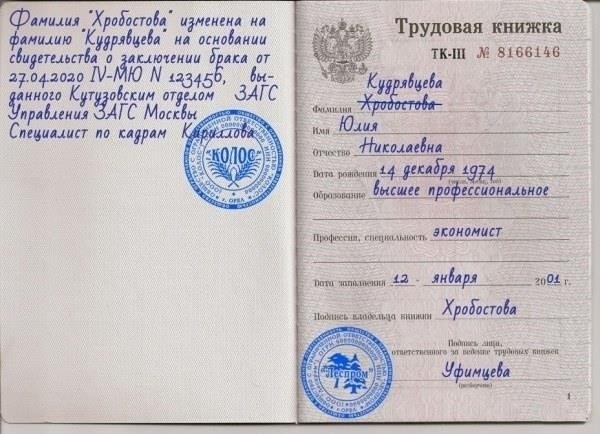 Фамилия "Хробостова" изменена на
фамилию "Кудрявцева" на основании
свидетельства о заключении брака от
27.04.2020 IV-МЮ N 123456, вы-
данного Кутузовским отделом ЗАГС
Управления ЗАГС Москвы
Специалист по кадрам Кириллова
"КОЛОС"
г. ОРЕЛ
Трудовая книжка
ТК-III № 8166146
Кудрявцева
Фамилия Хробостова
Имя Юлия
Отчество Николаевна
Дата рождения 14 декабря 1974
Образование высшее профессиональное
Профессия, специальность экономист
Дата заполнения 12 - января 2001 г.
Подпись владельца книжки Хробостова
Подпись лица,
ответственного за ведение трудовых книжек
Уфимцева
(разборчиво)
"Леспром"
1